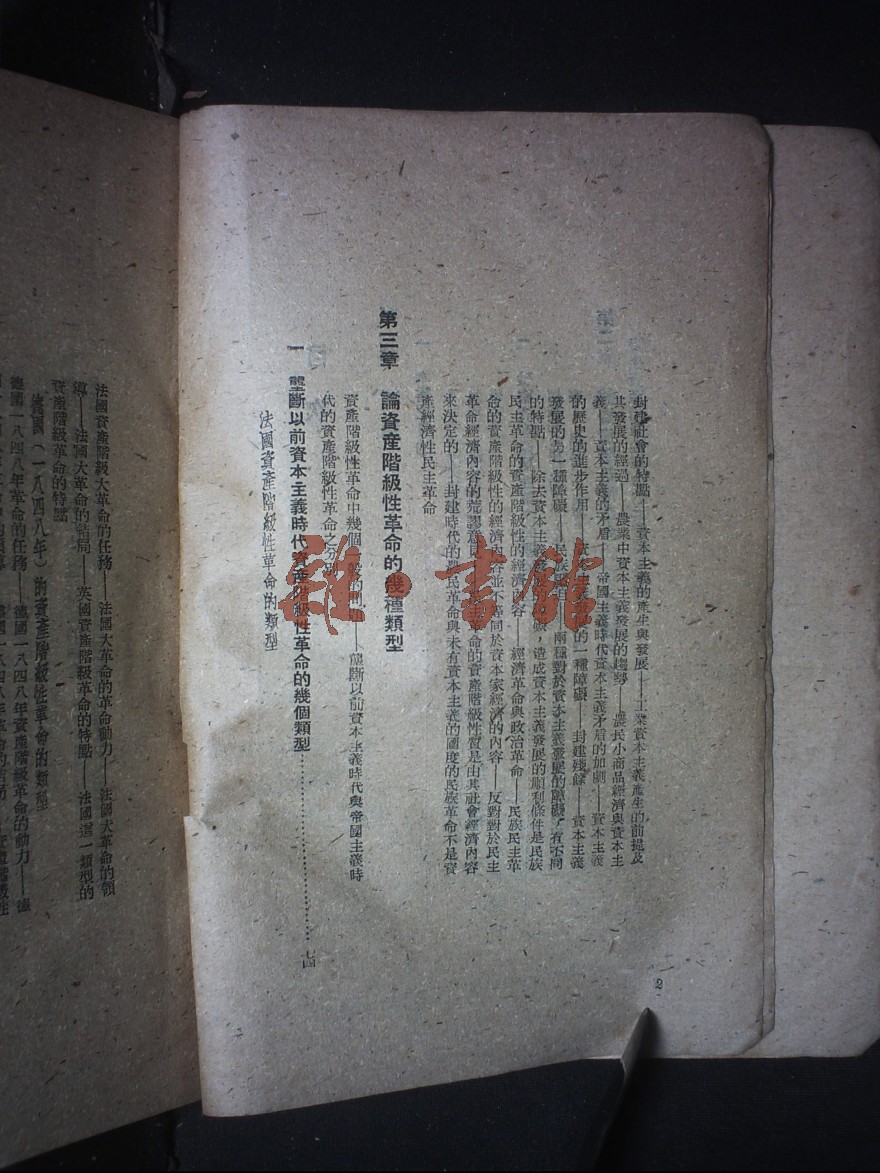 封建社會的特點——資本主義的產生與發展——工業資本主義產生的前提及
其發展的經過——農業中資本主義發展的趨勢——農民小商品經濟與資本主
義——資本主義的矛盾——帝國主義時代資本主義矛盾的加劇——資本主義
的歷史的進步作用——資本主義發展的一種障礙——封建殘餘——資本主義
發展的另一種障礙——民族壓迫——兩種對於資本主義發展的障礙，有不同
的特點——除去資本主義發展的障礙，造成資本主義發展的順利條件是民族
民主革命的資產階級性的經濟內容——經濟革命與政治革命——民族民主革
命的資產階級性的經濟內容並不等同於資本家經濟的內容——反對對於民主
革命經濟內容的荒謬意見——民主革命的資產階級性質是由其社會經濟內容
來決定的——封建時代的農民革命與未有資本主義的國度的民族革命不是資
產經濟性民主革命
第三章 論資產階級性革命的幾種類型
資產階級性革命中幾個一般的問題——壟斷以前資本主義時代與帝國主義時
代的資產階級性革命之分別
一 壟斷以前資本主義時代資產階級性革命的幾個類型…………七四
法國資產階級性革命的類型
2
法國資產階級大革命的任務——法國大革命的革命動力——法國大革命的領
導——法國大革命的結局——英國資產階級革命的特點——法國這一類型的
資產階級革命的特點
德國（一八四八年）的資產階級性革命的類型
德國一八四八年革命的任務——德國一八四八年資產階級革命的動力——德
雜·書館